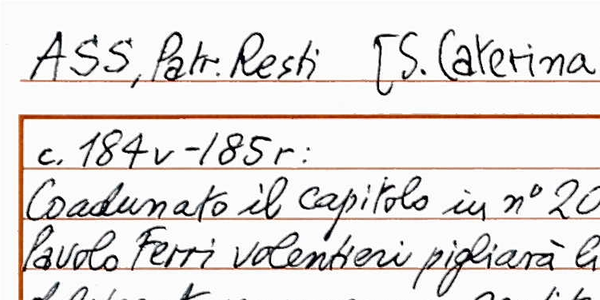 ASS, Patr. Resti [S. Caterina
c. 184v-185r:
Coadunato il capitolo in n° 20
Pavolo Ferri volentieri pigliarà li